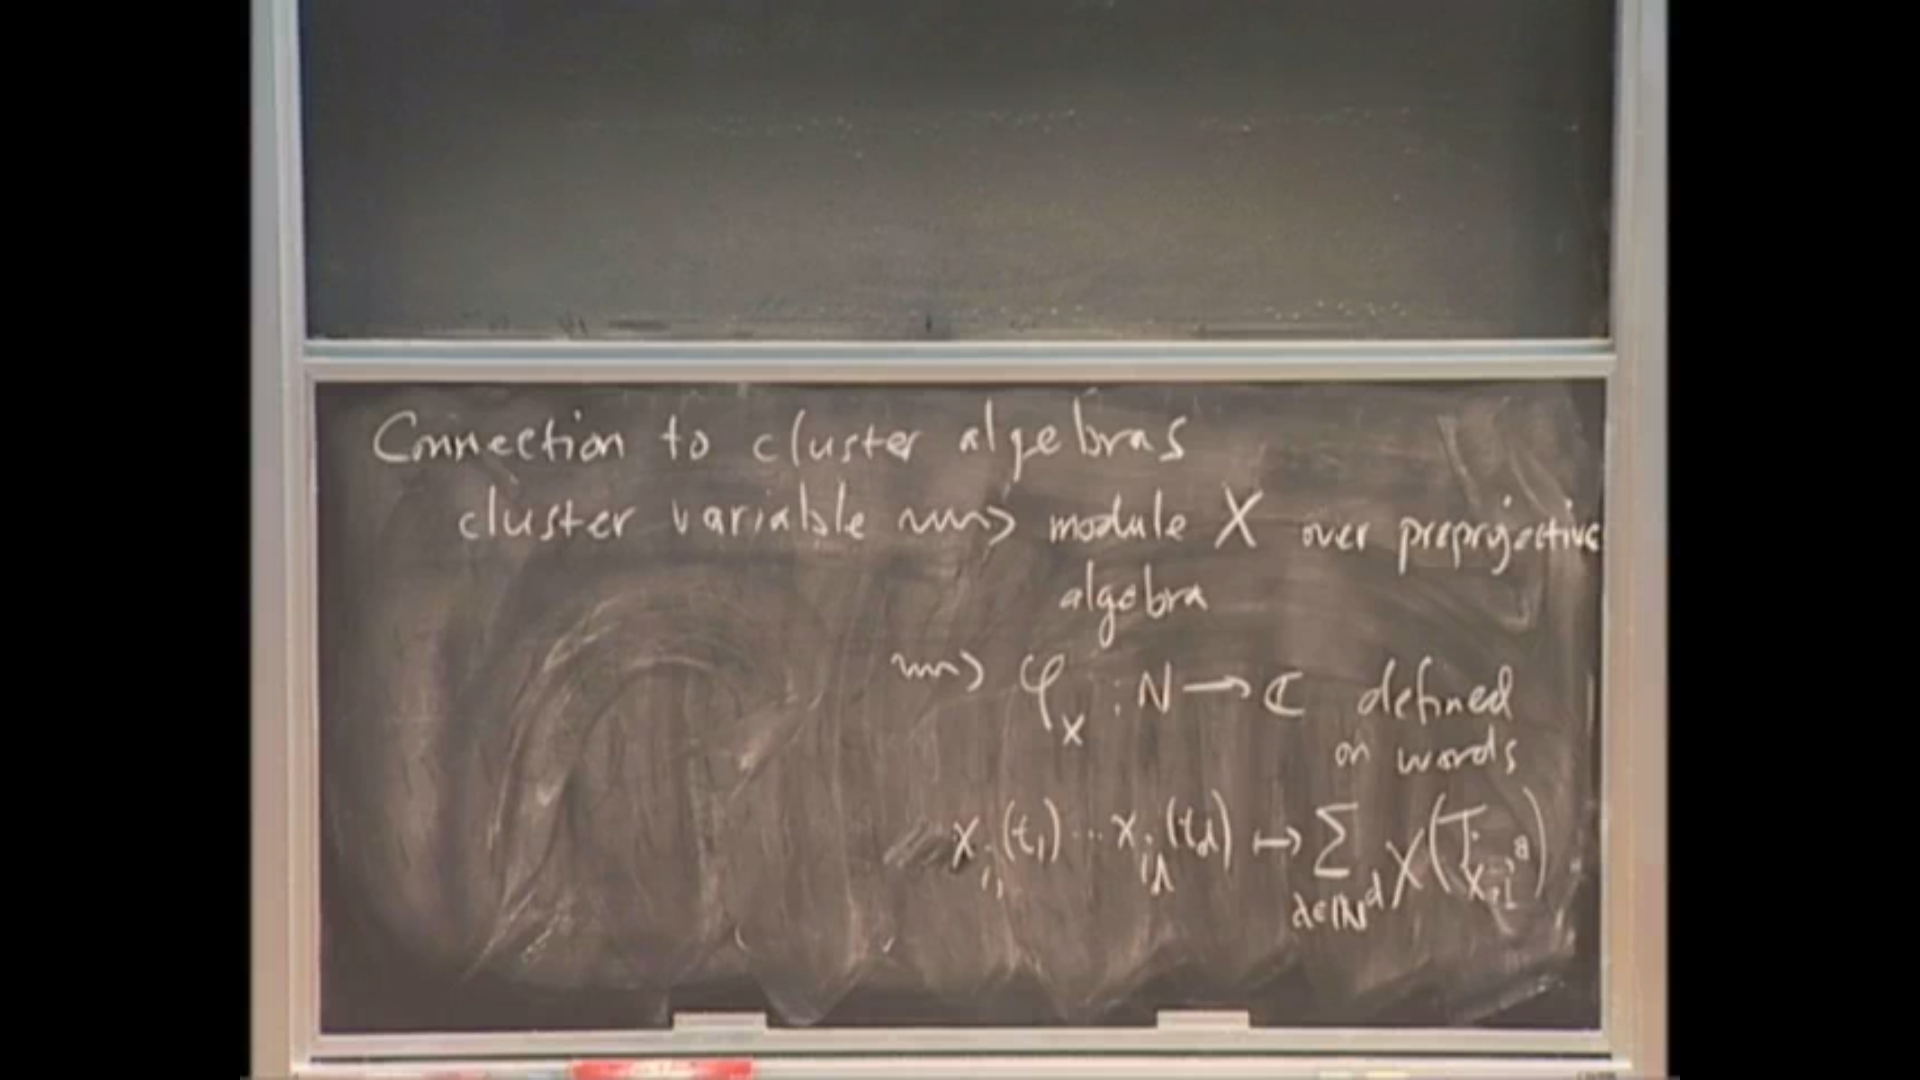 Connection to cluster algebras
cluster variable ⇝ module X over preprojective
algebra
⇝ φ_X : N → ℂ defined
on words
x_{i_1}(t_1) ⋯ x_{i_d}(t_d) ↦ Σ_{a∈ℕ^d} χ(F_{X,i,a})